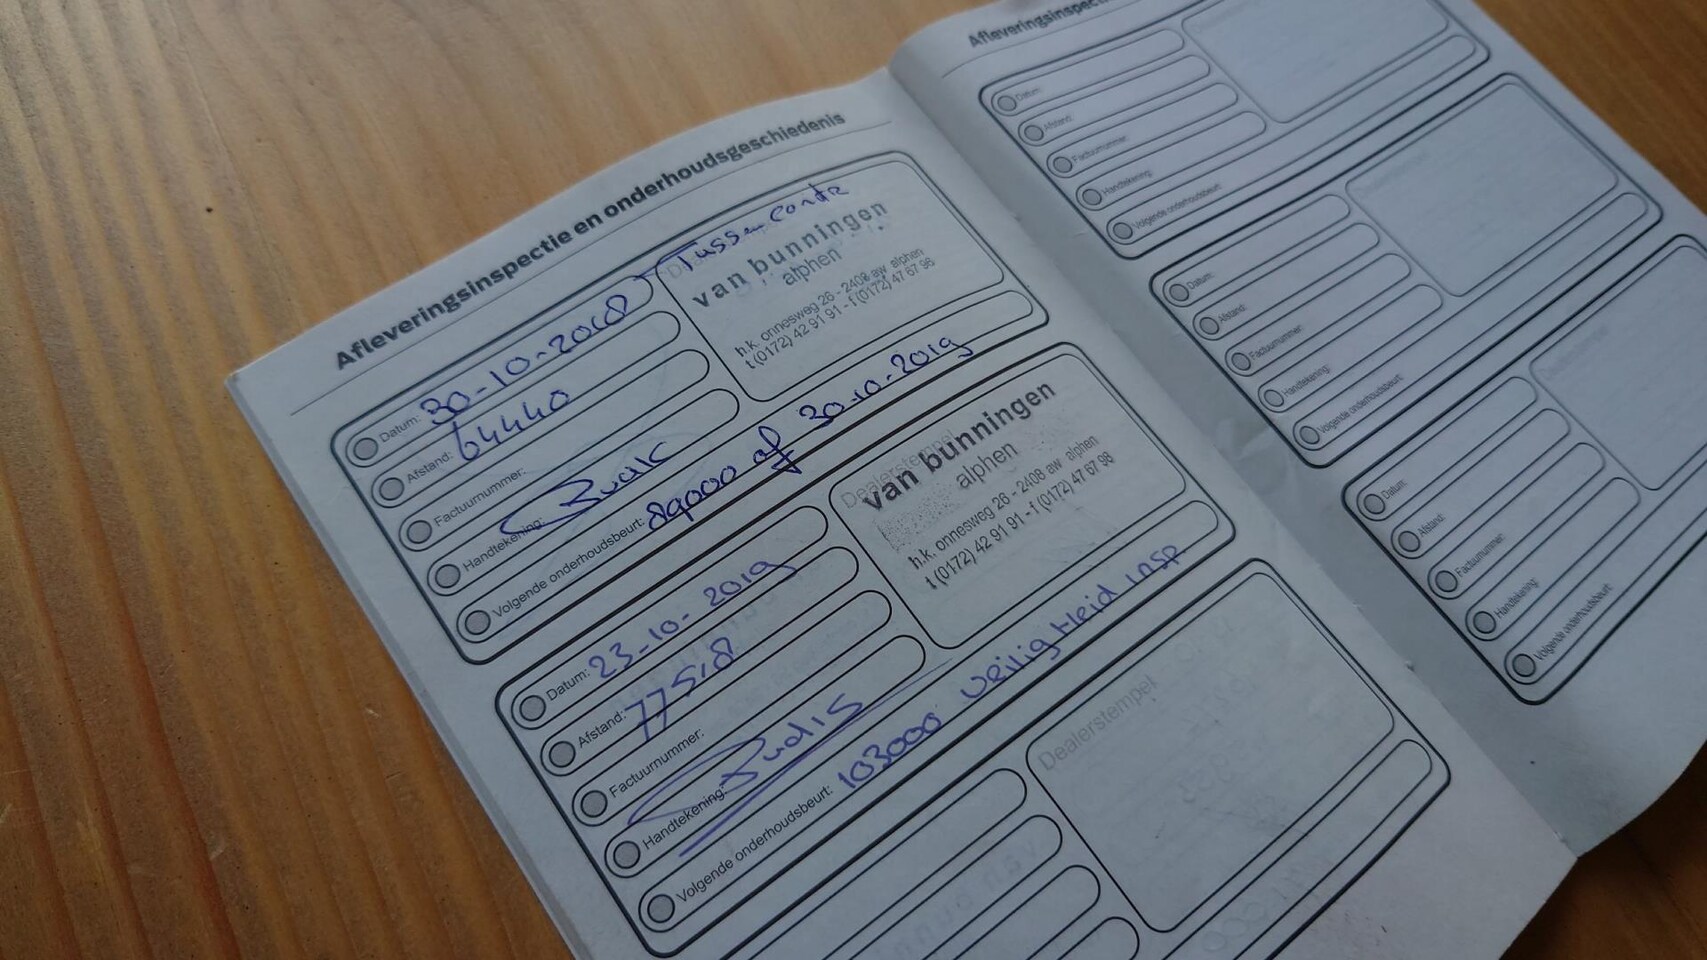 Afleveringsinspectie en onderhoudsgeschiedenis
Datum: 30-10-2018
Afstand: 64440
Factuurnummer:
Handtekening:
Volgende onderhoudsbeurt: 89000 of 30-10-2019
van bunningen
alphen
h.k. onnesweg 26 - 2408 aw alphen
t (0172) 42 91 91 - f (0172) 47 67 98
Datum: 23-10-2019
Afstand: 77518
Factuurnummer:
Handtekening:
Volgende onderhoudsbeurt: 103000 veiligheid insp
Dealerstempel
van bunningen
alphen
h.k. onnesweg 26 - 2408 aw alphen
t (0172) 42 91 91 - f (0172) 47 67 98
Dealerstempel
Afleveringsinspectie
Datum:
Afstand:
Factuurnummer:
Handtekening:
Volgende onderhoudsbeurt:
Datum:
Afstand:
Factuurnummer:
Handtekening:
Volgende onderhoudsbeurt:
Datum:
Afstand:
Factuurnummer:
Handtekening:
Volgende onderhoudsbeurt: